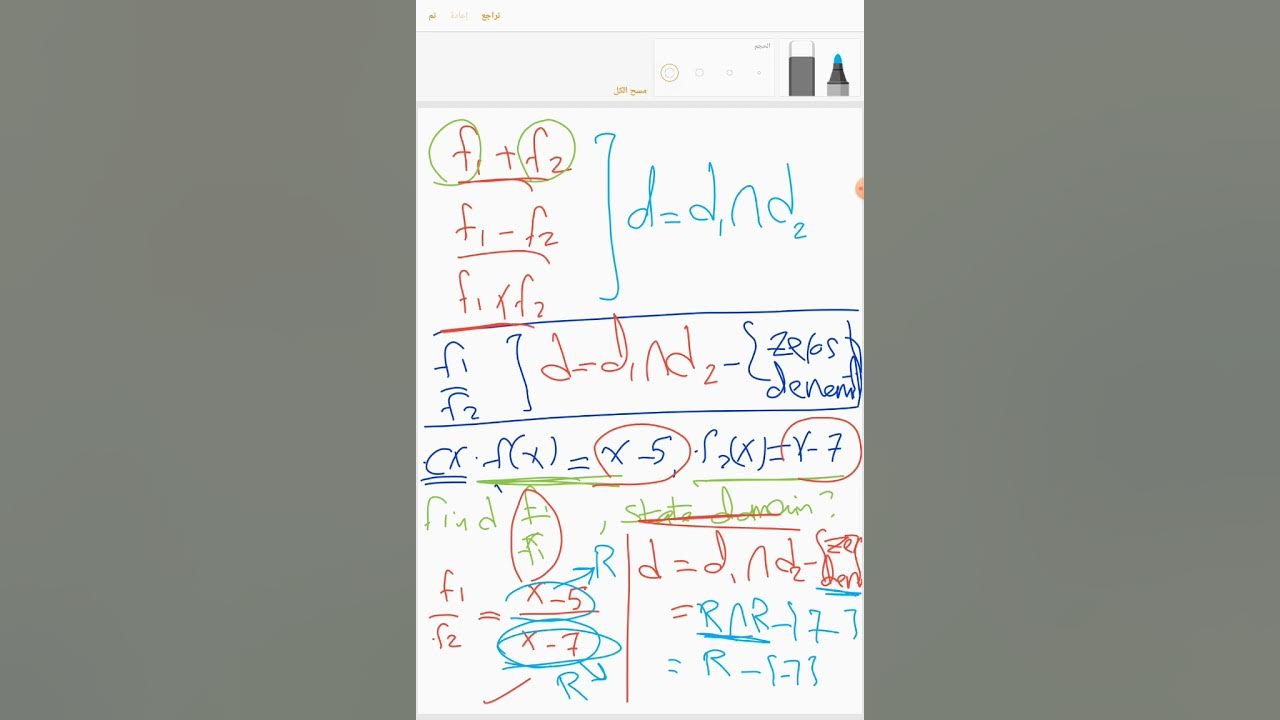 تراجع إعادة تم
الحجم
مسح الكل
f₁ + f₂
f₁ - f₂
f₁ × f₂
d = d₁ ∩ d₂
f₁/f₂
d = d₁ ∩ d₂ - {zeros
denom
ex. f₁(x) = x - 5, f₂(x) = x - 7
find f₁/f₁, state domain?
f₁/f₂ = x - 5/x - 7
R
R
d = d₁ ∩ d₂ - {zer
den
= R ∩ R - {7}
= R - {7}